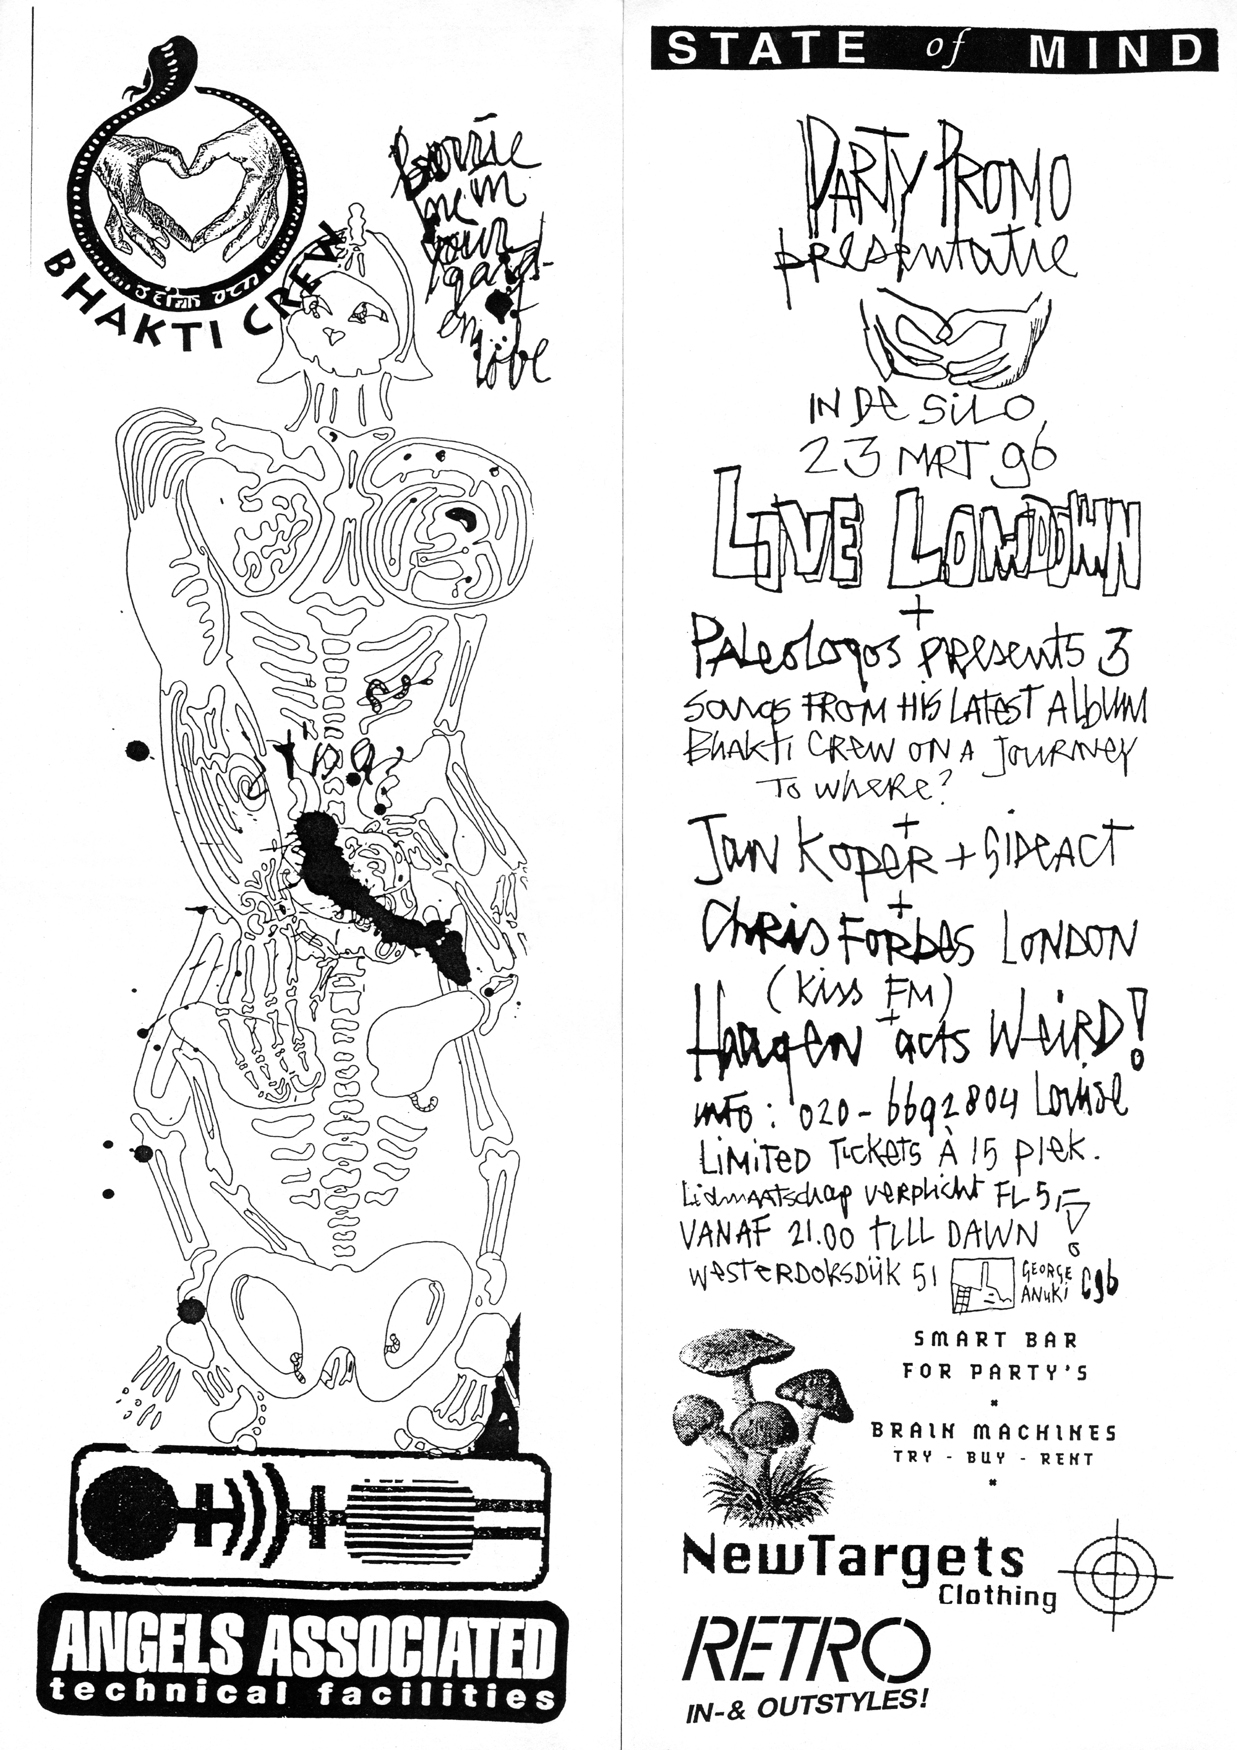 BHAKTI CREW
me in
your
gard-
en
love
ANGELS ASSOCIATED
technical facilities
STATE of MIND
PARTY PROMO
presentatie
IN DE SILO
23 MRT 96
LIVE LOWDOWN
+
PALeoLogos PResents 3
songs FROM HIS LATEST ALbUM
BhAkTi CREW ON A JOURNEY
To where?
+
Jan Koper + SIDEACT
+
Chris Forbes LONDON
(Kiss FM)
+
Haagen acts Weird!
info: 020-6692804 Louise
LIMITED TickETs À 15 piek.
Lidmaatschap verplicht FL 5,-
VANAF 21.00 tILL DAWN !
WesTERDOKSDIJK 51
GEORGE
ANUKI
C96
SMART BAR
FOR PARTY'S
BRAIN MACHINES
TRY - BUY - RENT
NewTargets
Clothing
RETRO
IN-& OUTSTYLES!